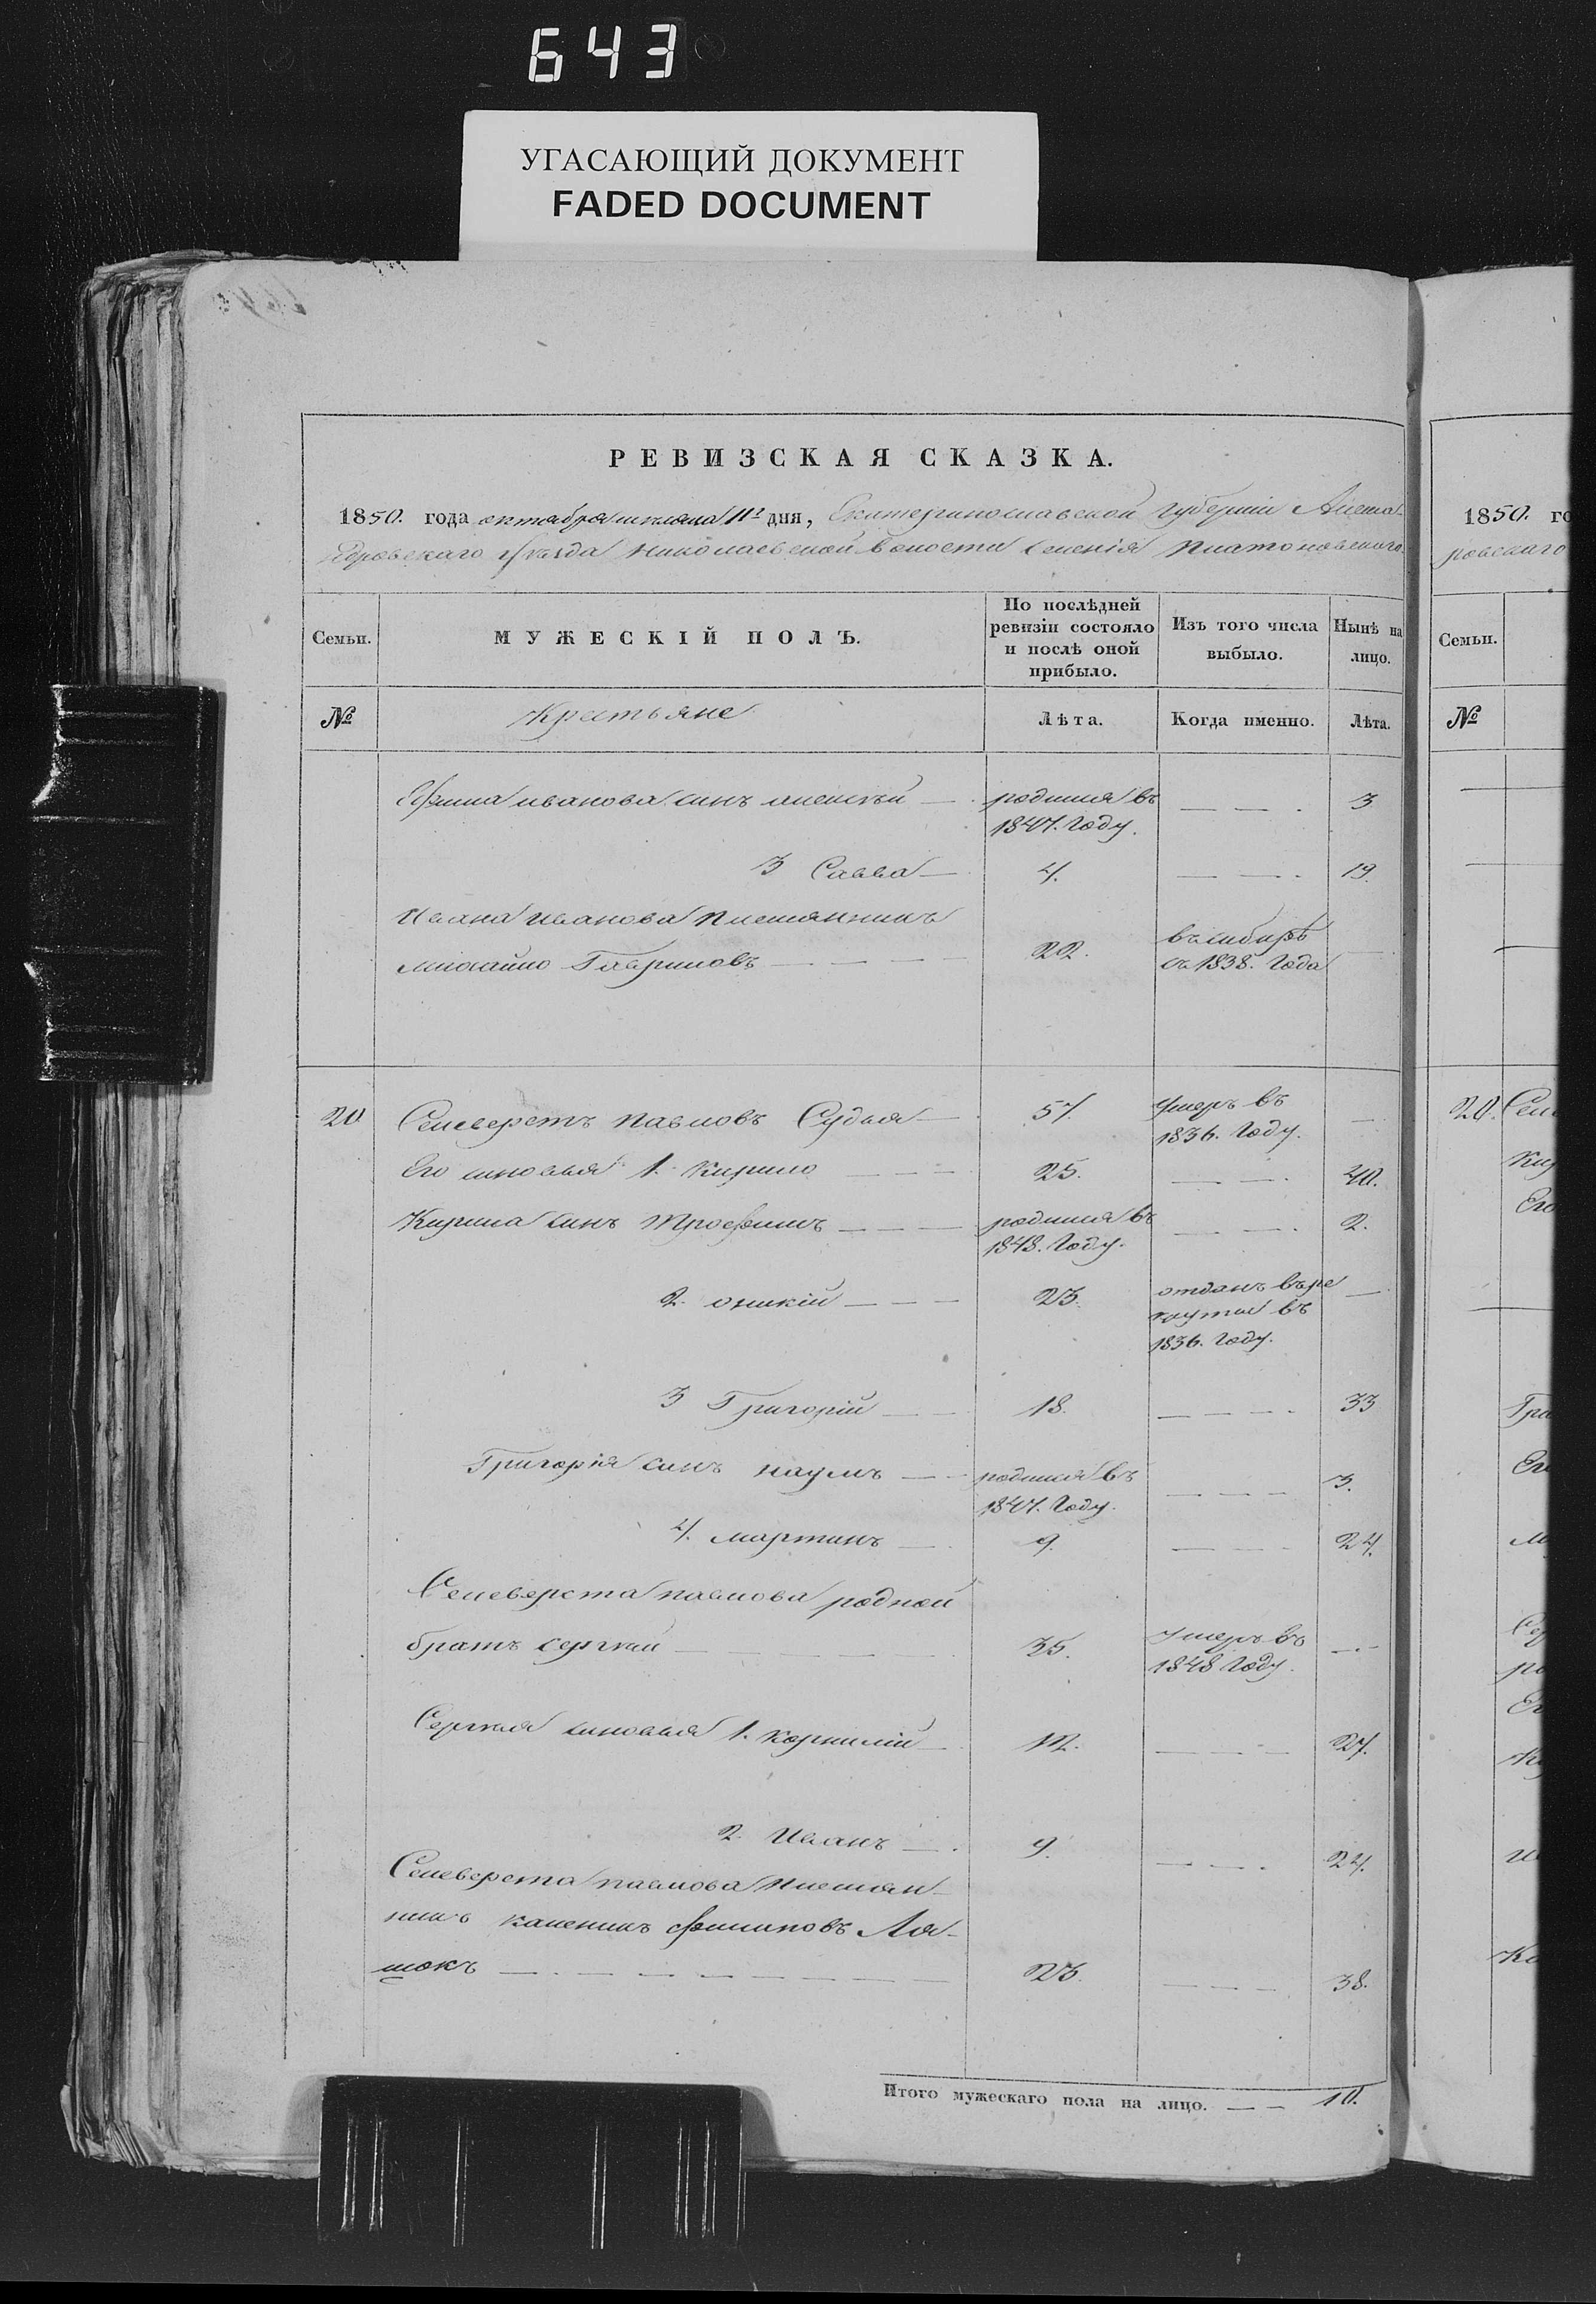 643
УГАСАЮЩИЙ ДОКУМЕНТ
FADED DOCUMENT
РЕВИЗСКАЯ СКАЗКА.
1850. года октября месяца 11го дня, Екатеринославской губерніи Алекса-
ндровскаго уѣзда Николаевской волости селенія Платоновскаго
Семьи.
МУЖЕСКІЙ ПОЛЪ.
По послѣдней ревизіи состояло и послѣ оной прибыло.
Изъ того числа выбыло.
Нынѣ на лицо.
№ Крестьяне Лѣта. Когда именно. Лѣта.
Ефима иванова синъ алексѣй — родился въ — — . 3
1847. Году.
3 Савва — 4. — — . 19.
Ивана иванова племянникъ
михайло Гавриловъ — — — 22. въ сибирѣ —
съ 1838. Года
20 Селеверстъ павловъ Судья — 57. Умеръ въ —
1836. Году.
Его синовья 1. Кирило — — — 25. — — . 40.
Кирила синъ Трофимъ — — — родился въ — — . 2.
1848. Году.
2. оникій — — — 23. отданъ въ ре —
круты въ
1836. Году.
3 Григорій — — 18. — — — . 33
Григорія синъ наумъ — — родился въ — — — 3.
1847. Году.
4. мартинъ — 9. — — — 24.
Селеверста павлова родной
братъ сергѣй — — — — — 35. Умеръ въ — . —
1848 Году.
Сергѣя синовья 1. корнилій — 12. — — — 27.
2. Иванъ — . 9. — — . 24.
Селеверста павлова племян-
никъ каленикъ филиповъ Ля-
шокъ — — — — — — — — 23. — — — 38.
Итого мужескаго пола на лицо. — — 10.
1850. го
ровскаго
Семьи.
№
20. Селе
Кир
Его
Гри
Его
Ко